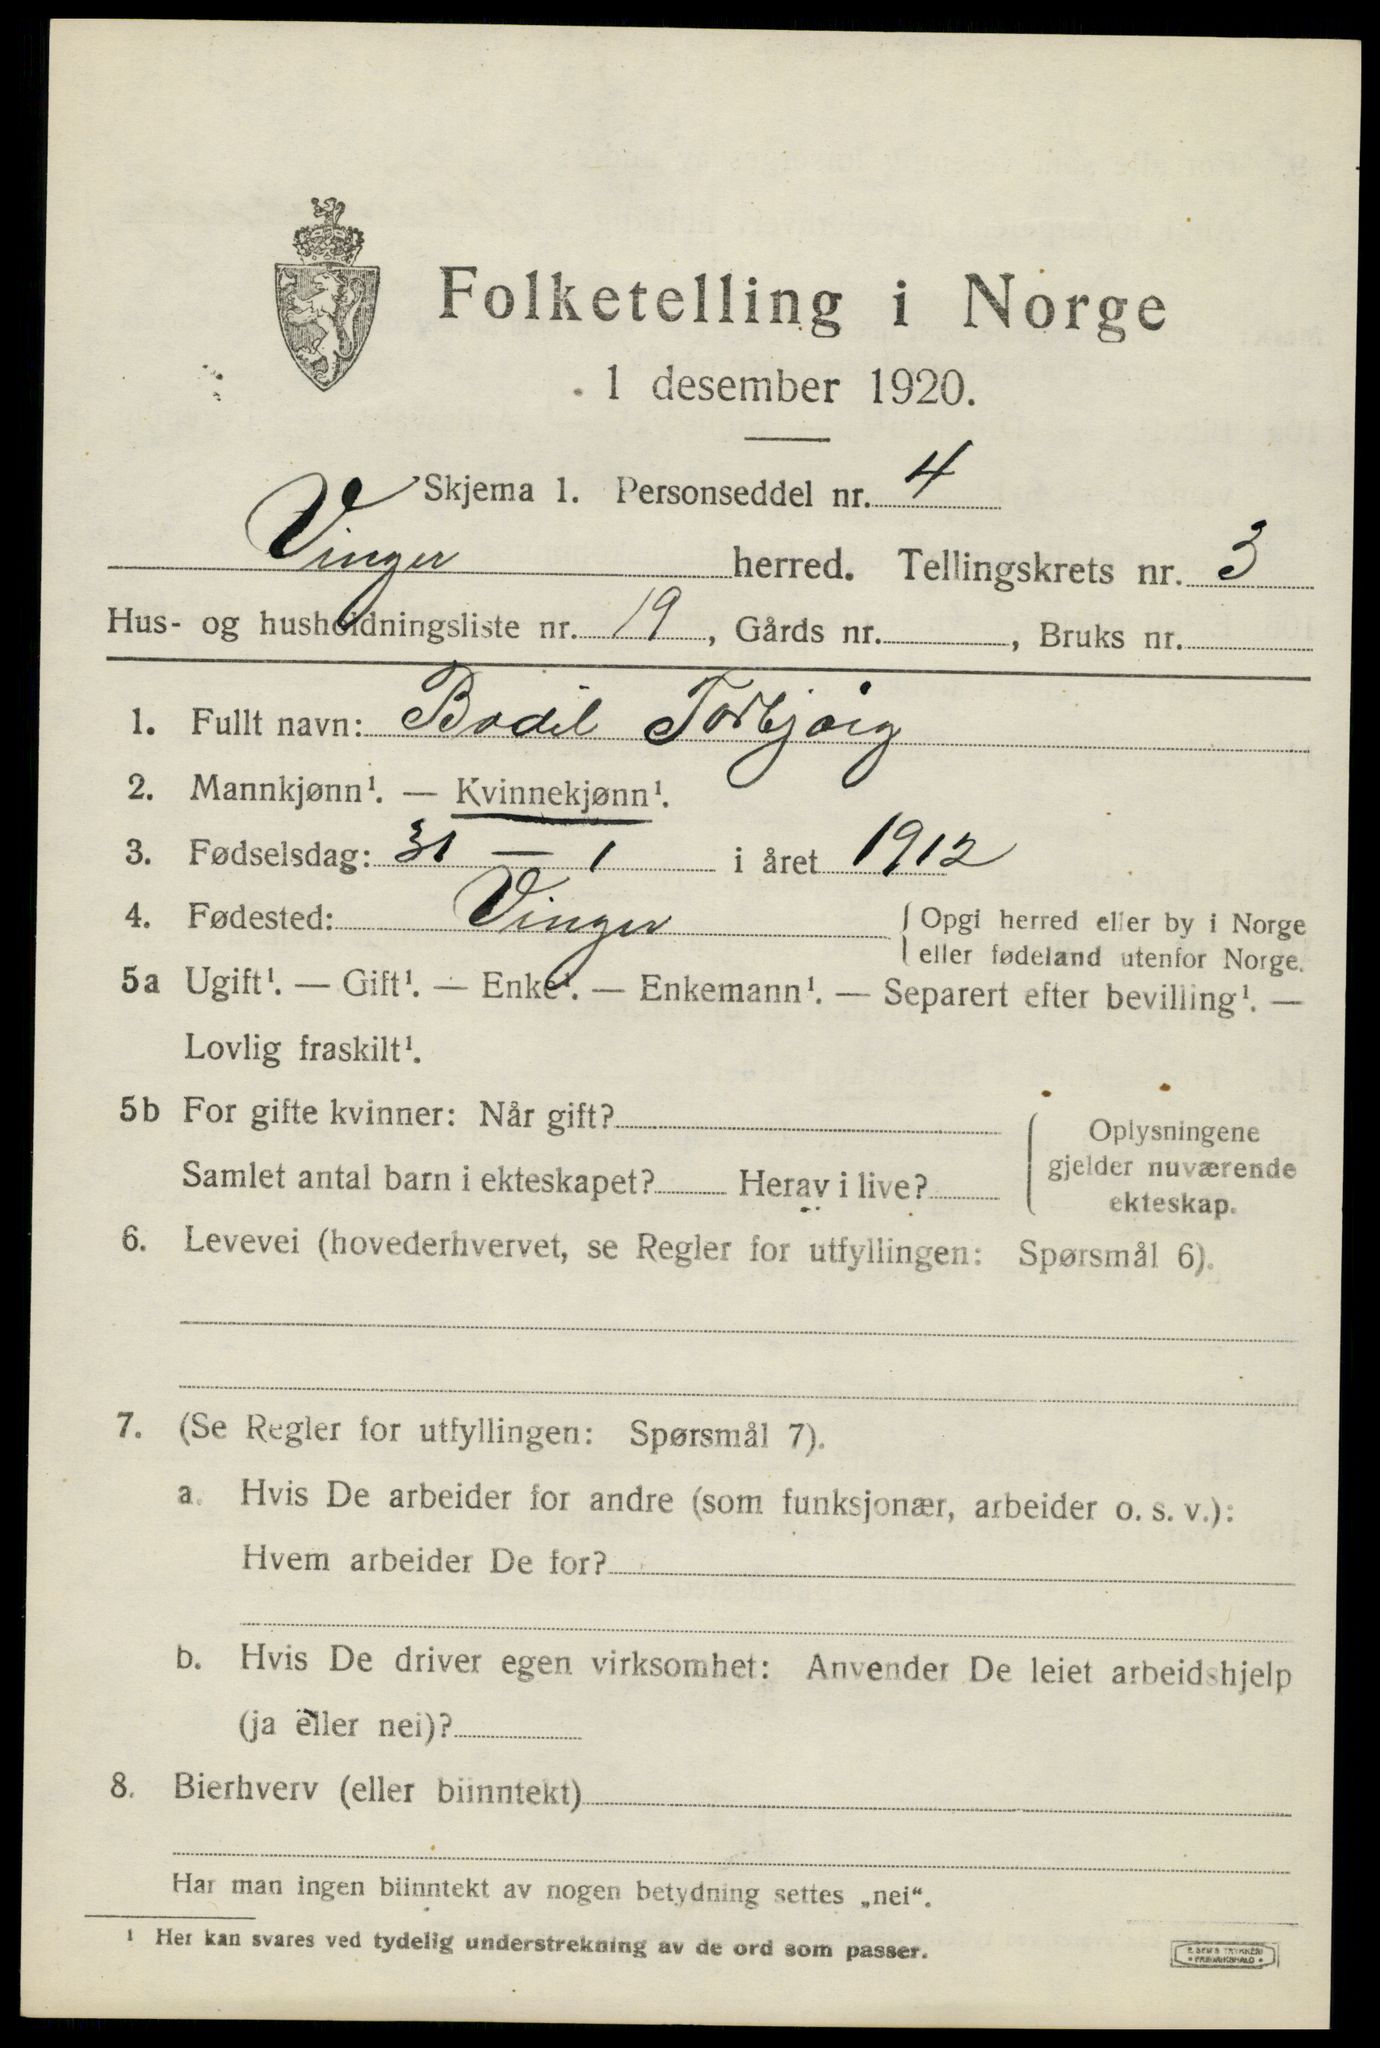 Folketelling i Norge
1 desember 1920.
Skjema 1. Personseddel nr. 4
Vinger herred. Tellingskrets nr. 3
Hus- og husholdningsliste nr. 19, Gårds nr. , Bruks nr.
1. Fullt navn: Bodil Torbjørg
2. Mannkjønn¹. — Kvinnekjønn¹.
3. Fødselsdag: 31 — 1 i året 1912
4. Fødested: Vinger { Opgi herred eller by i Norge
eller fødeland utenfor Norge.
5a Ugift¹. — Gift¹. — Enke¹. — Enkemann¹. — Separert efter bevilling¹. —
Lovlig fraskilt¹.
5b For gifte kvinner: Når gift?
Samlet antal barn i ekteskapet? Herav i live?
Oplysningene
gjelder nuværende
ekteskap.
6. Levevei (hovederhvervet, se Regler for utfyllingen: Spørsmål 6).
7. (Se Regler for utfyllingen: Spørsmål 7).
a. Hvis De arbeider for andre (som funksjonær, arbeider o. s. v.):
Hvem arbeider De for?
b. Hvis De driver egen virksomhet: Anvender De leiet arbeidshjelp
(ja eller nei)?
8. Bierhverv (eller biinntekt)
Har man ingen biinntekt av nogen betydning settes „nei“.
¹ Her kan svares ved tydelig understrekning av de ord som passer.
E. SEM'S TRYKKERI
• FREDRIKSHALD •